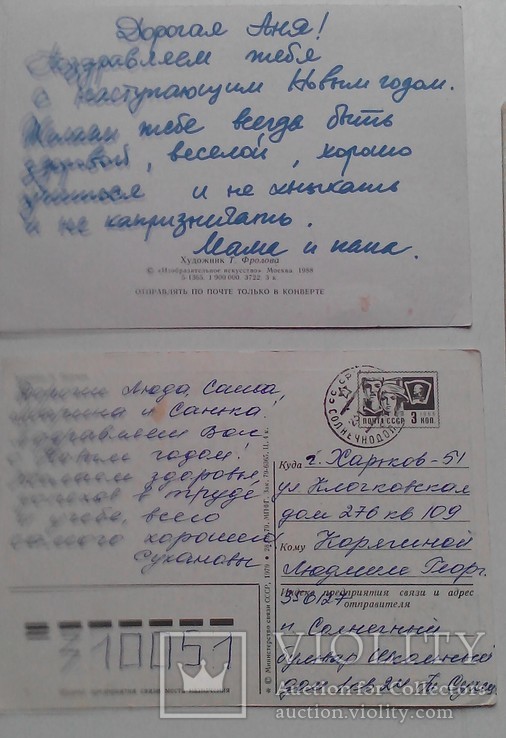 Дорогая Аня!
Поздравляем тебя
с наступающим Новым годом.
Желаем тебе всегда быть
здоровой, веселой, хорошо
учиться и не хныкать
и не капризничать.
Мама и папа.
Художник Т. Фролова
© «Изобразительное искусство» Москва. 1988
5-1365. 1 900 000. 3722. 3 к.
ОТПРАВЛЯТЬ ПО ПОЧТЕ ТОЛЬКО В КОНВЕРТЕ
Дорогие Люда, Саша,
и Санька!
Поздравляем Вас
с Новым годом!
Желаем здоровья,
успехов в труде
и учебе, всего
самого хорошего
Сухановы
СССР
СОЛНЕЧНОДОЛ
ПОЧТА СССР 3 КОП.
Куда г. Харьков-51
ул Клочковская
дом 276 кв 109
Кому Корягиной
Людмиле Георг.
Индекс предприятия связи и адрес
отправителя
п. Солнечный
бульвар Школьный
дом
© Министерство связи СССР, 1970
310051
VIOLITY
Auction for Collectors
auction.violity.com